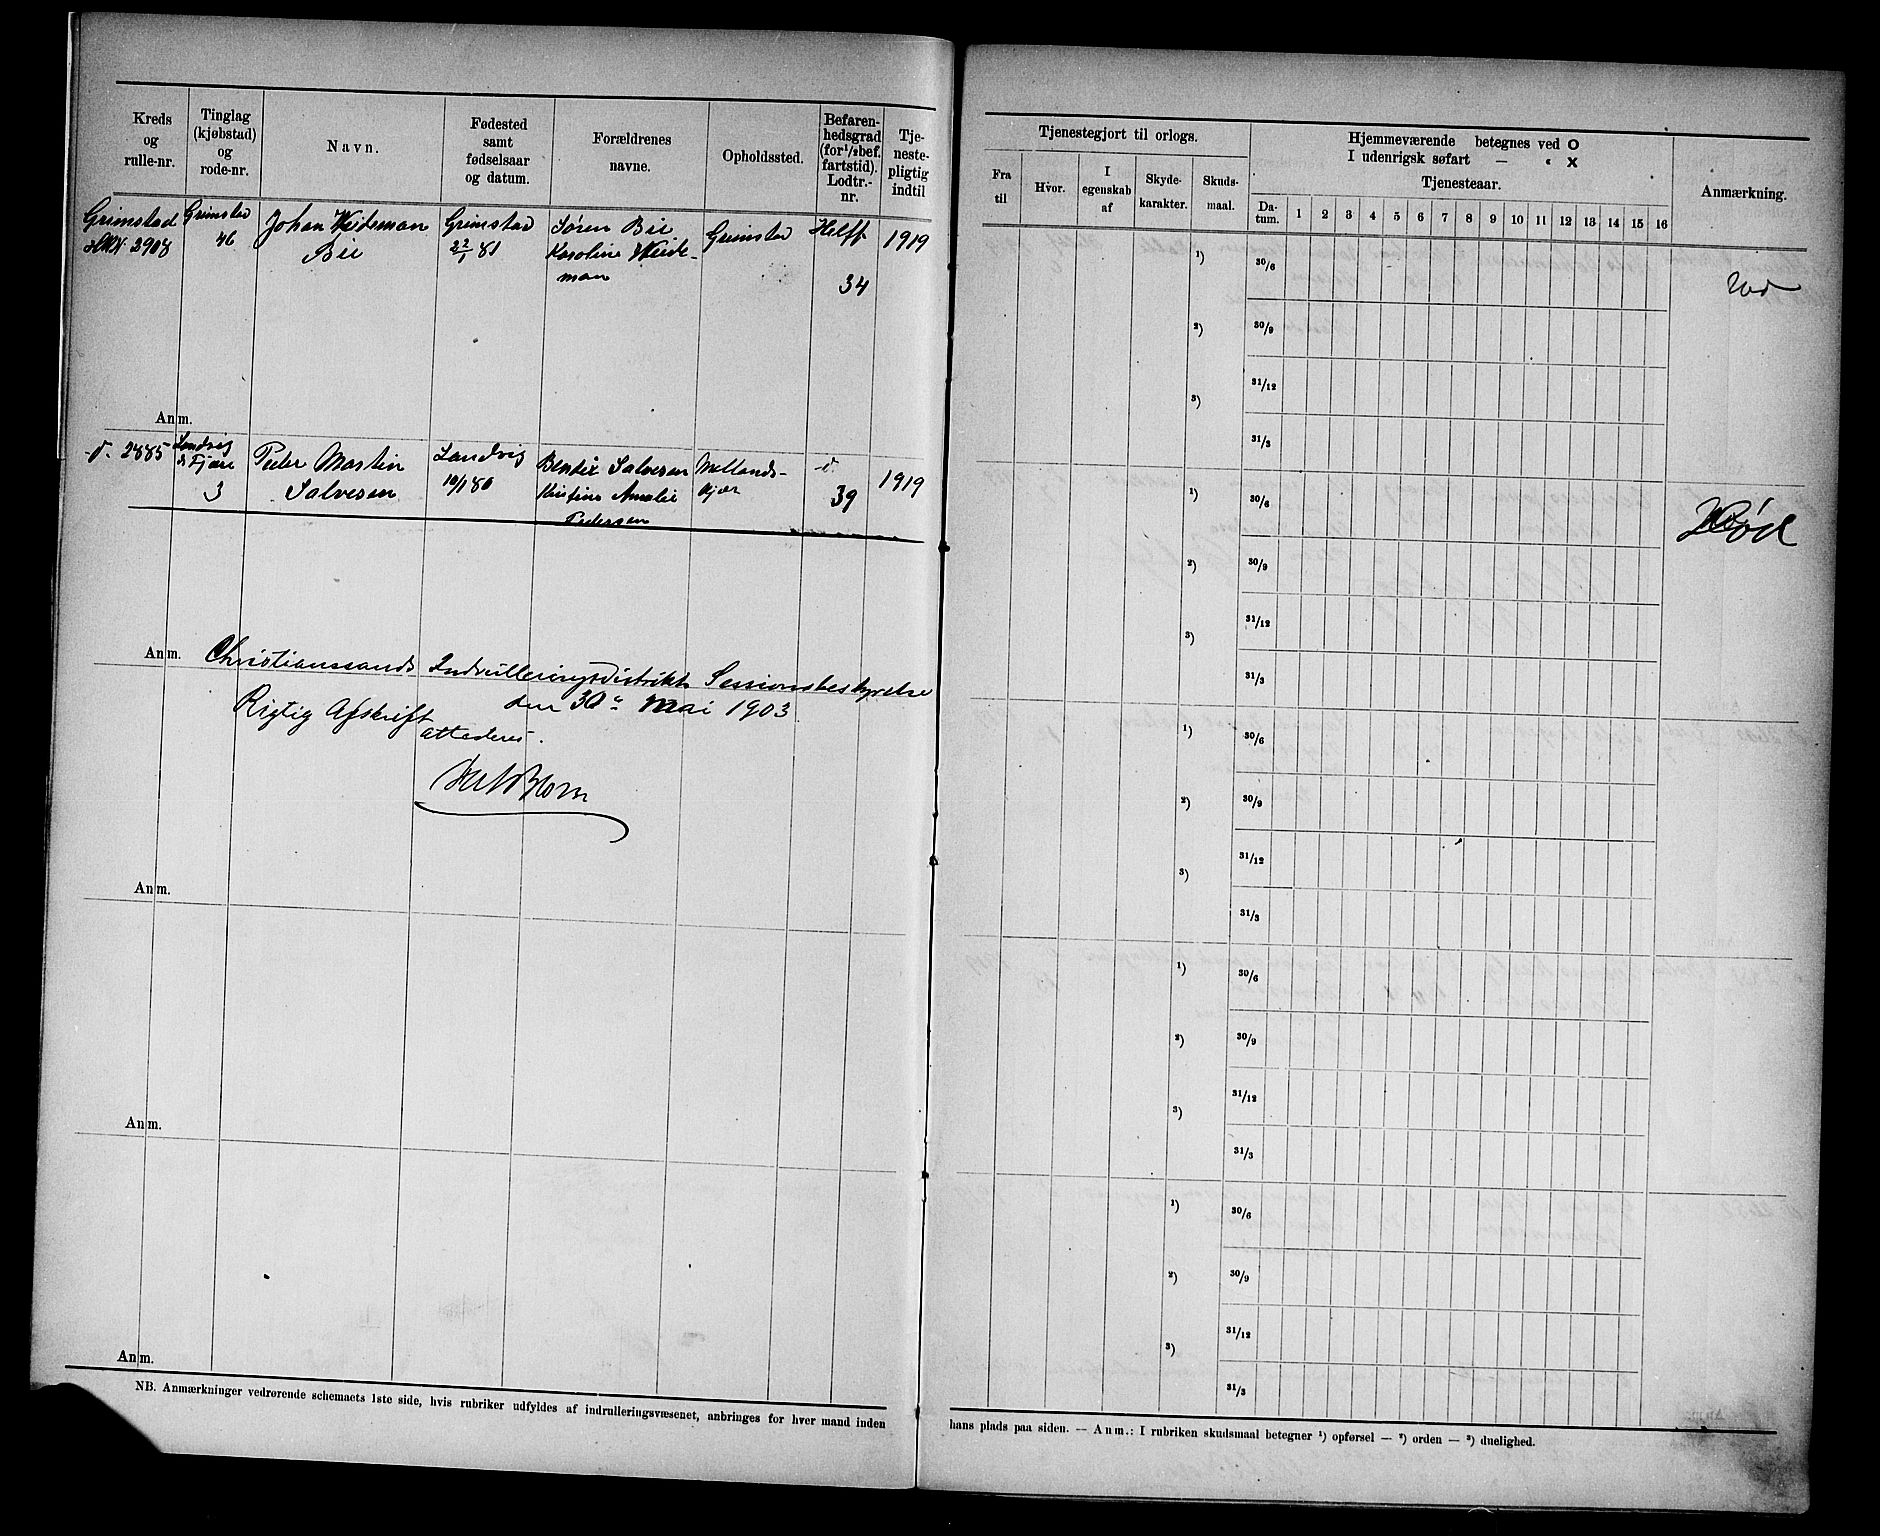 Kreds
og
rulle-nr.
Tinglag
(kjøbstad)
og
rode-nr.
Navn.
Fødested
samt
fødselsaar
og datum.
Forældrenes
navne.
Opholdssted.
Befaren-
hedsgrad
(for 1/2 bef.
fartstid).
Lodtr.-
nr.
Tje-
neste-
pligtig
indtil
Grimstad
2908
Grimstad
46
Johan Weideman
Bie
Grimstad
22/1 81
Søren Bie
Karoline Weide-
man
Grimstad
Helff
34
1919
Anm.
d. 2885
Landvig
& Fjære
3
Peder Martin
Salvesen
Landvig
10/1 80
Bendix Salvesen
Kristine Amalie
Pedersen
Mellands-
kjær
d.
39
1919
Anm.
Christianssands Indrulleringsdistrikts Sessionsbestyrelse
den 30te Mai 1903
Rigtig Afskrift
attesteres.
Anm.
Anm.
Anm.
NB. Anmærkninger vedrørende schemaets 1ste side, hvis rubriker udfyldes af indrulleringsvæsenet, anbringes for hver mand inden
Tjenestegjort til orlogs.
Hjemmeværende betegnes ved O
I udenrigsk søfart — " X
Tjenesteaar.
Anmærkning.
Fra
til
Hvor.
I
egenskab
af
Skyde-
karakter.
Skuds-
maal.
Da-
tum.
1 2 3 4 5 6 7 8 9 10 11 12 13 14 15 16
1)
30/6
2)
30/9
31/12
3)
31/3
1)
30/6
Død
2)
30/9
31/12
3)
31/3
1)
30/6
2)
30/9
31/12
3)
31/3
1)
30/6
2)
30/9
31/12
3)
31/3
1)
30/6
2)
30/9
31/12
3)
31/3
hans plads paa siden. — Anm.: I rubriken skudsmaal betegner 1) opførsel — 2) orden — 3) duelighed.